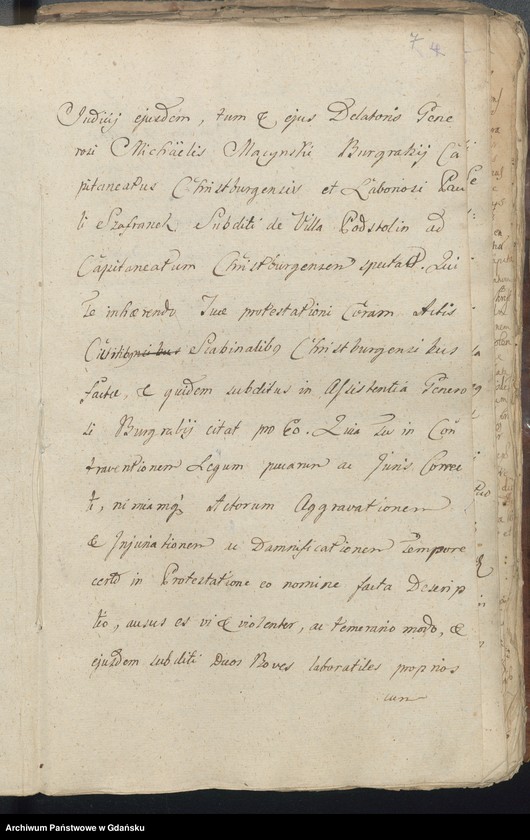 74
Judicij ejusdem, tum & ejus Delatoris Gene
rosi Michäelis Mącynski Burgrabij Ca
pitaneatus Christburgensis et Laboriosi Pau
li Szafranek Subditi de Villa Podstolin ad
Capitaneatum Christburgensem spectat. Qui
Te inhærendo Suæ protestationi Coram Actis
Scabinalibq Christburgensi bus
factæ, & quidem subditus in Assistentia Genero
si Burgrabij citat pro Eo. Quia Tu in Con
traventionem Legum ac Juris Correc
ti, nimiamq Actorum Aggravationem
& Injuriationem ac Damnificationem Tempore
certo in Protestatione eo nomine facta Descrip
to, ausus es vi & violenter, ac temerario modo, &
ejusdem subditi Duos Boves laboratiles proprios
cum
Archiwum Państwowe w Gdańsku